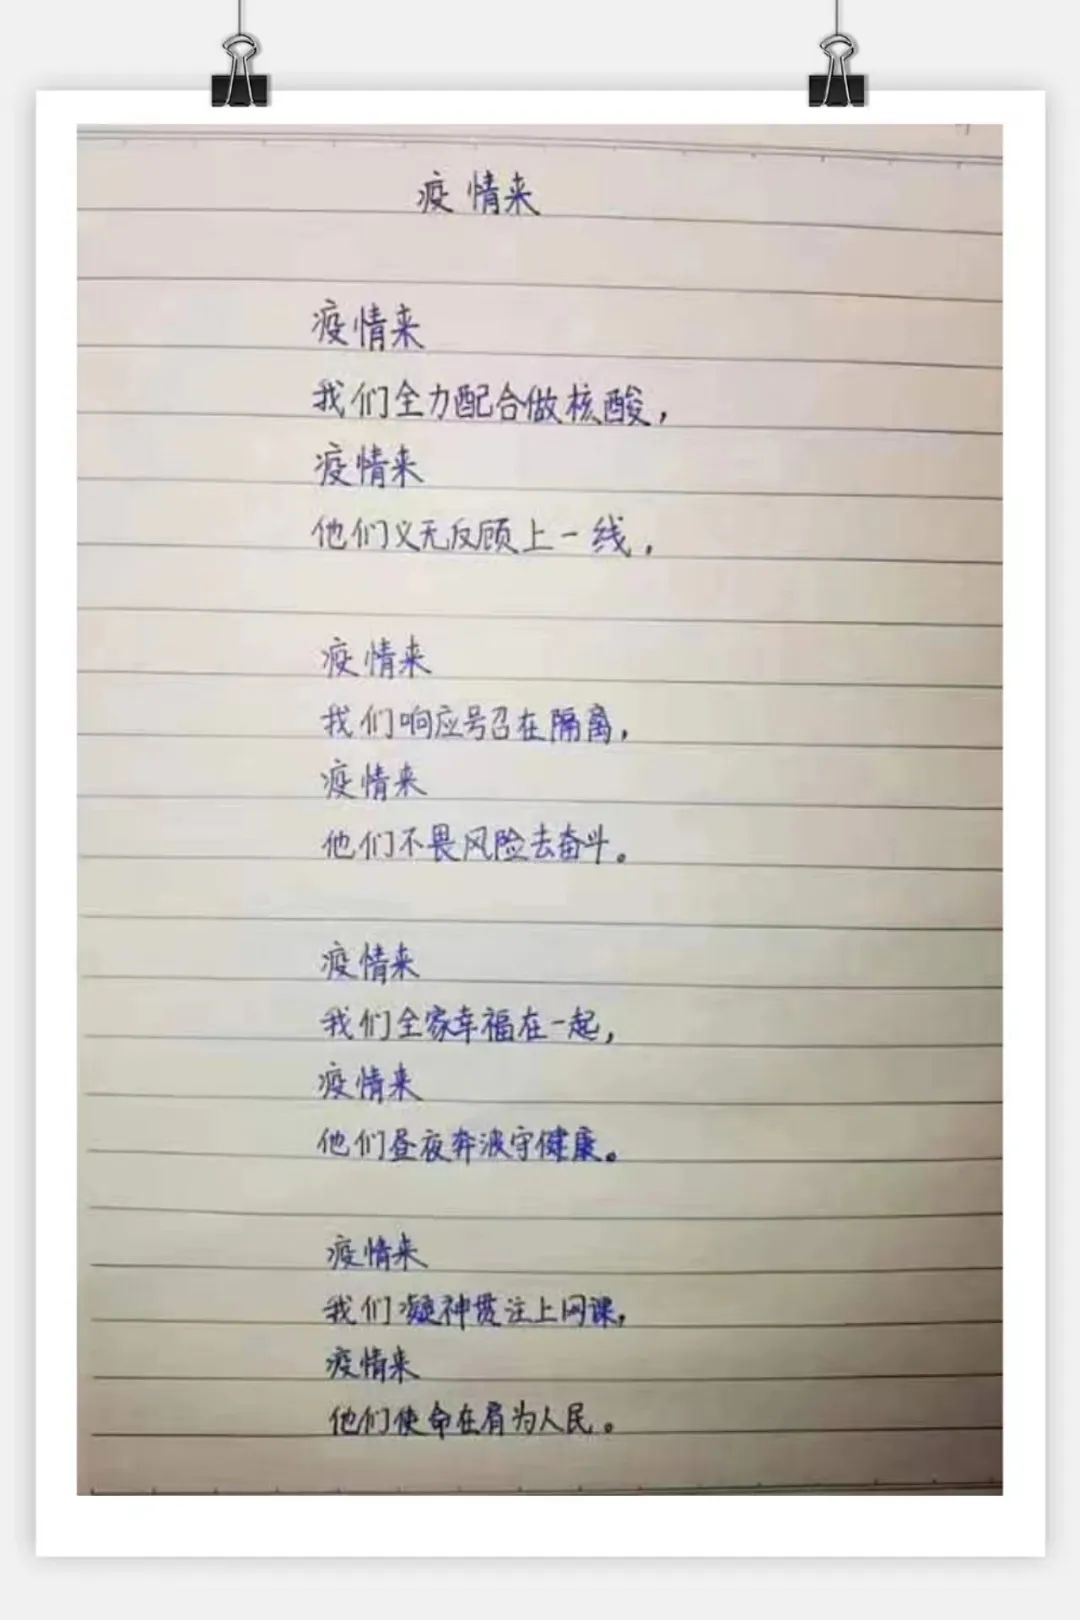 疫情来
疫情来
我们全力配合做核酸,
疫情来
他们义无反顾上一线,
疫情来
我们响应号召在隔离,
疫情来
他们不畏风险去奋斗。
疫情来
我们全家幸福在一起,
疫情来
他们昼夜奔波守健康。
疫情来
我们凝神贯注上网课,
疫情来
他们使命在肩为人民。